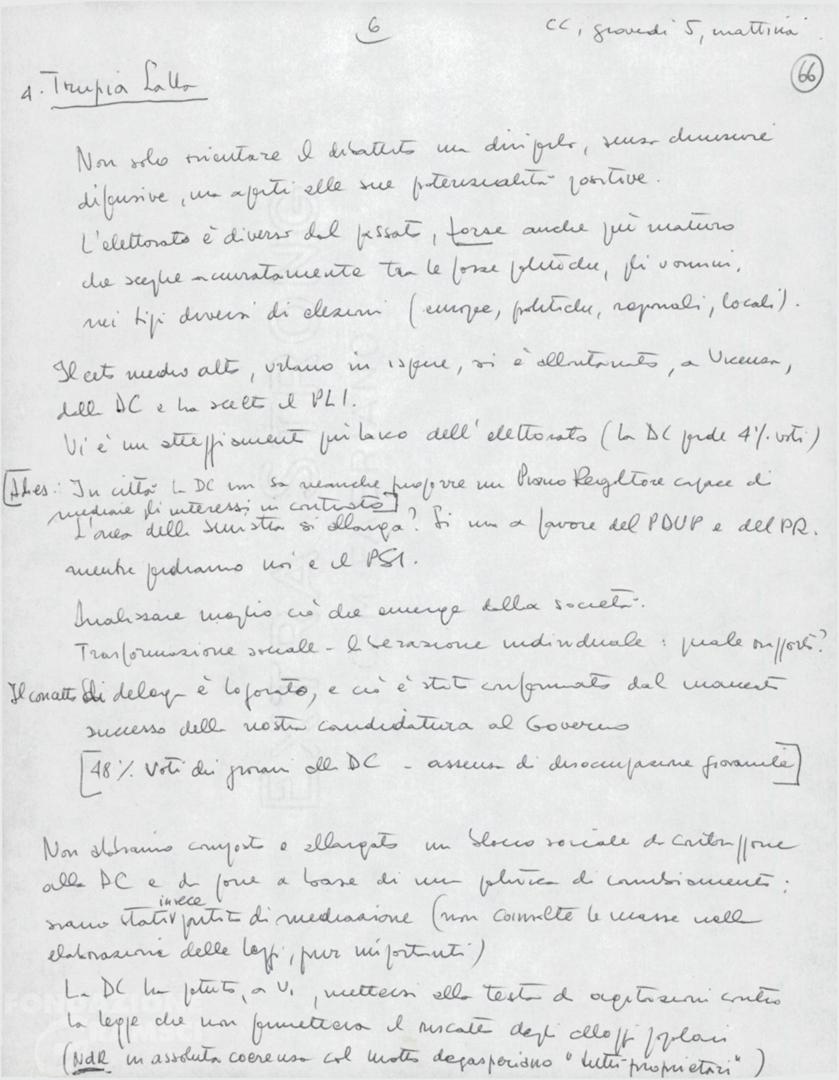 6
CC, giovedì 5, mattina
66
4. Trupia Lalla
Non solo orientare il dibattito ma dirigerlo, senza chiusure
difensive, ma aperti alle sue potenzialità positive.
L'elettorato è diverso dal passato, forse anche più maturo
che sceglie accuratamente tra le forze politiche, gli uomini,
nei tipi diversi di elezioni (europee, politiche, regionali, locali).
Il ceto medio alto, urbano in ispecie, si è allontanato, a Vicenza,
dalla DC e ha scelto il PLI.
Vi è un atteggiamento più laico dell'elettorato (la DC perde 4% voti)
[Ad es: In città la DC non sa neanche proporre un Piano Regolatore capace di
mediare gli interessi in contrasto]
L'area della sinistra si allarga? Sì ma a favore del PDUP e del PR.
mentre perdiamo noi e il PSI.
Analizzare meglio ciò che emerge dalla società.
Trasformazione sociale - liberazione individuale: quale rapporto?
Il concetto di delega è logorato, e ciò è stato confermato dal mancato
successo della nostra candidatura al Governo
[48% voti dei giovani alla DC - assenza di disoccupazione giovanile]
Non abbiamo composto e allargato un blocco sociale da contrapporre
alla DC e da porre a base di una politica di cambiamento:
siamo stati invece partito di mediazione (non coinvolte le masse nella
elaborazione delle leggi, pur importanti)
La DC ha potuto, a Vi, mettersi alla testa di agitazioni contro
la legge che non permetteva il riscatto degli alloggi popolari
(NdR in assoluta coerenza col motto degasperiano "tutti proprietari")
FONDAZIONE
GRAMSCI